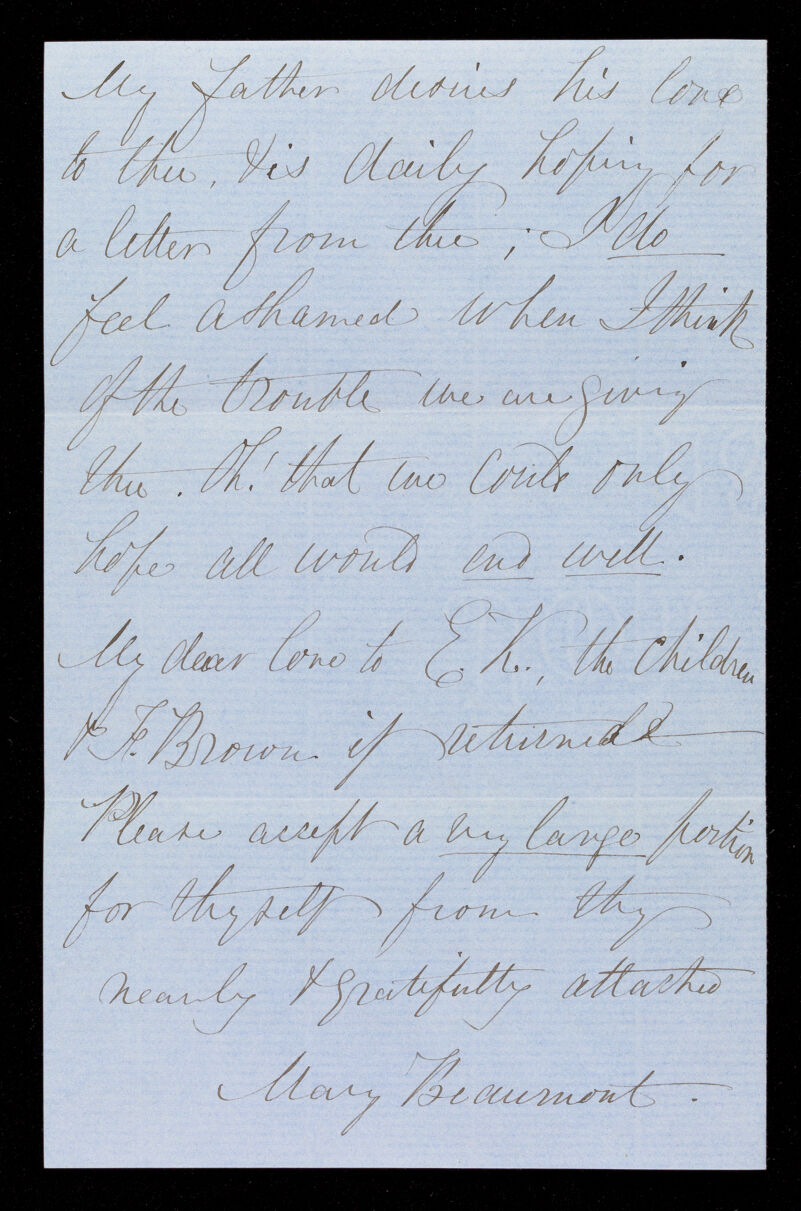 My father desires his love
to thee, & is daily hoping for
a letter from thee; I do
feel ashamed when I think
of the trouble we are giving
thee. Oh! that we could only
hope all would end well.
My dear love to E. K., the children
& F. Brown if returned &
Please accept a very large portion
for thyself from thy
nearly & gratefully attached
Mary Beaumont.